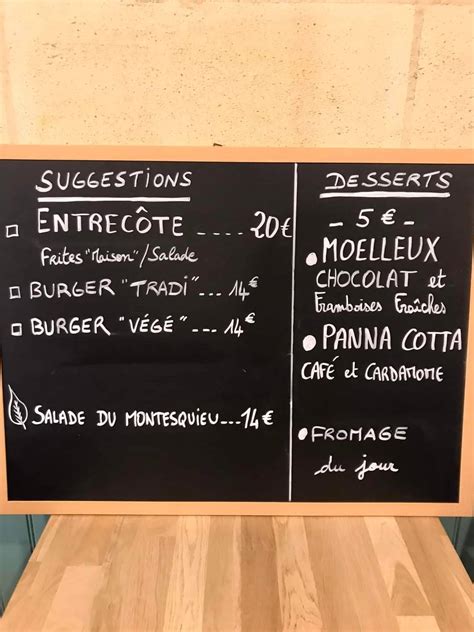 SUGGESTIONS
ENTRECÔTE ---- 20€
Frites "Maison"/Salade
BURGER "TRADI"--- 14€
BURGER "VÉGÉ"--- 14€
SALADE DU MONTESQUIEU---14€
DESSERTS
- 5€ -
MOELLEUX
CHOCOLAT et
Framboises Fraîches
PANNA COTTA
CAFÉ et CARDAMOME
FROMAGE
du jour